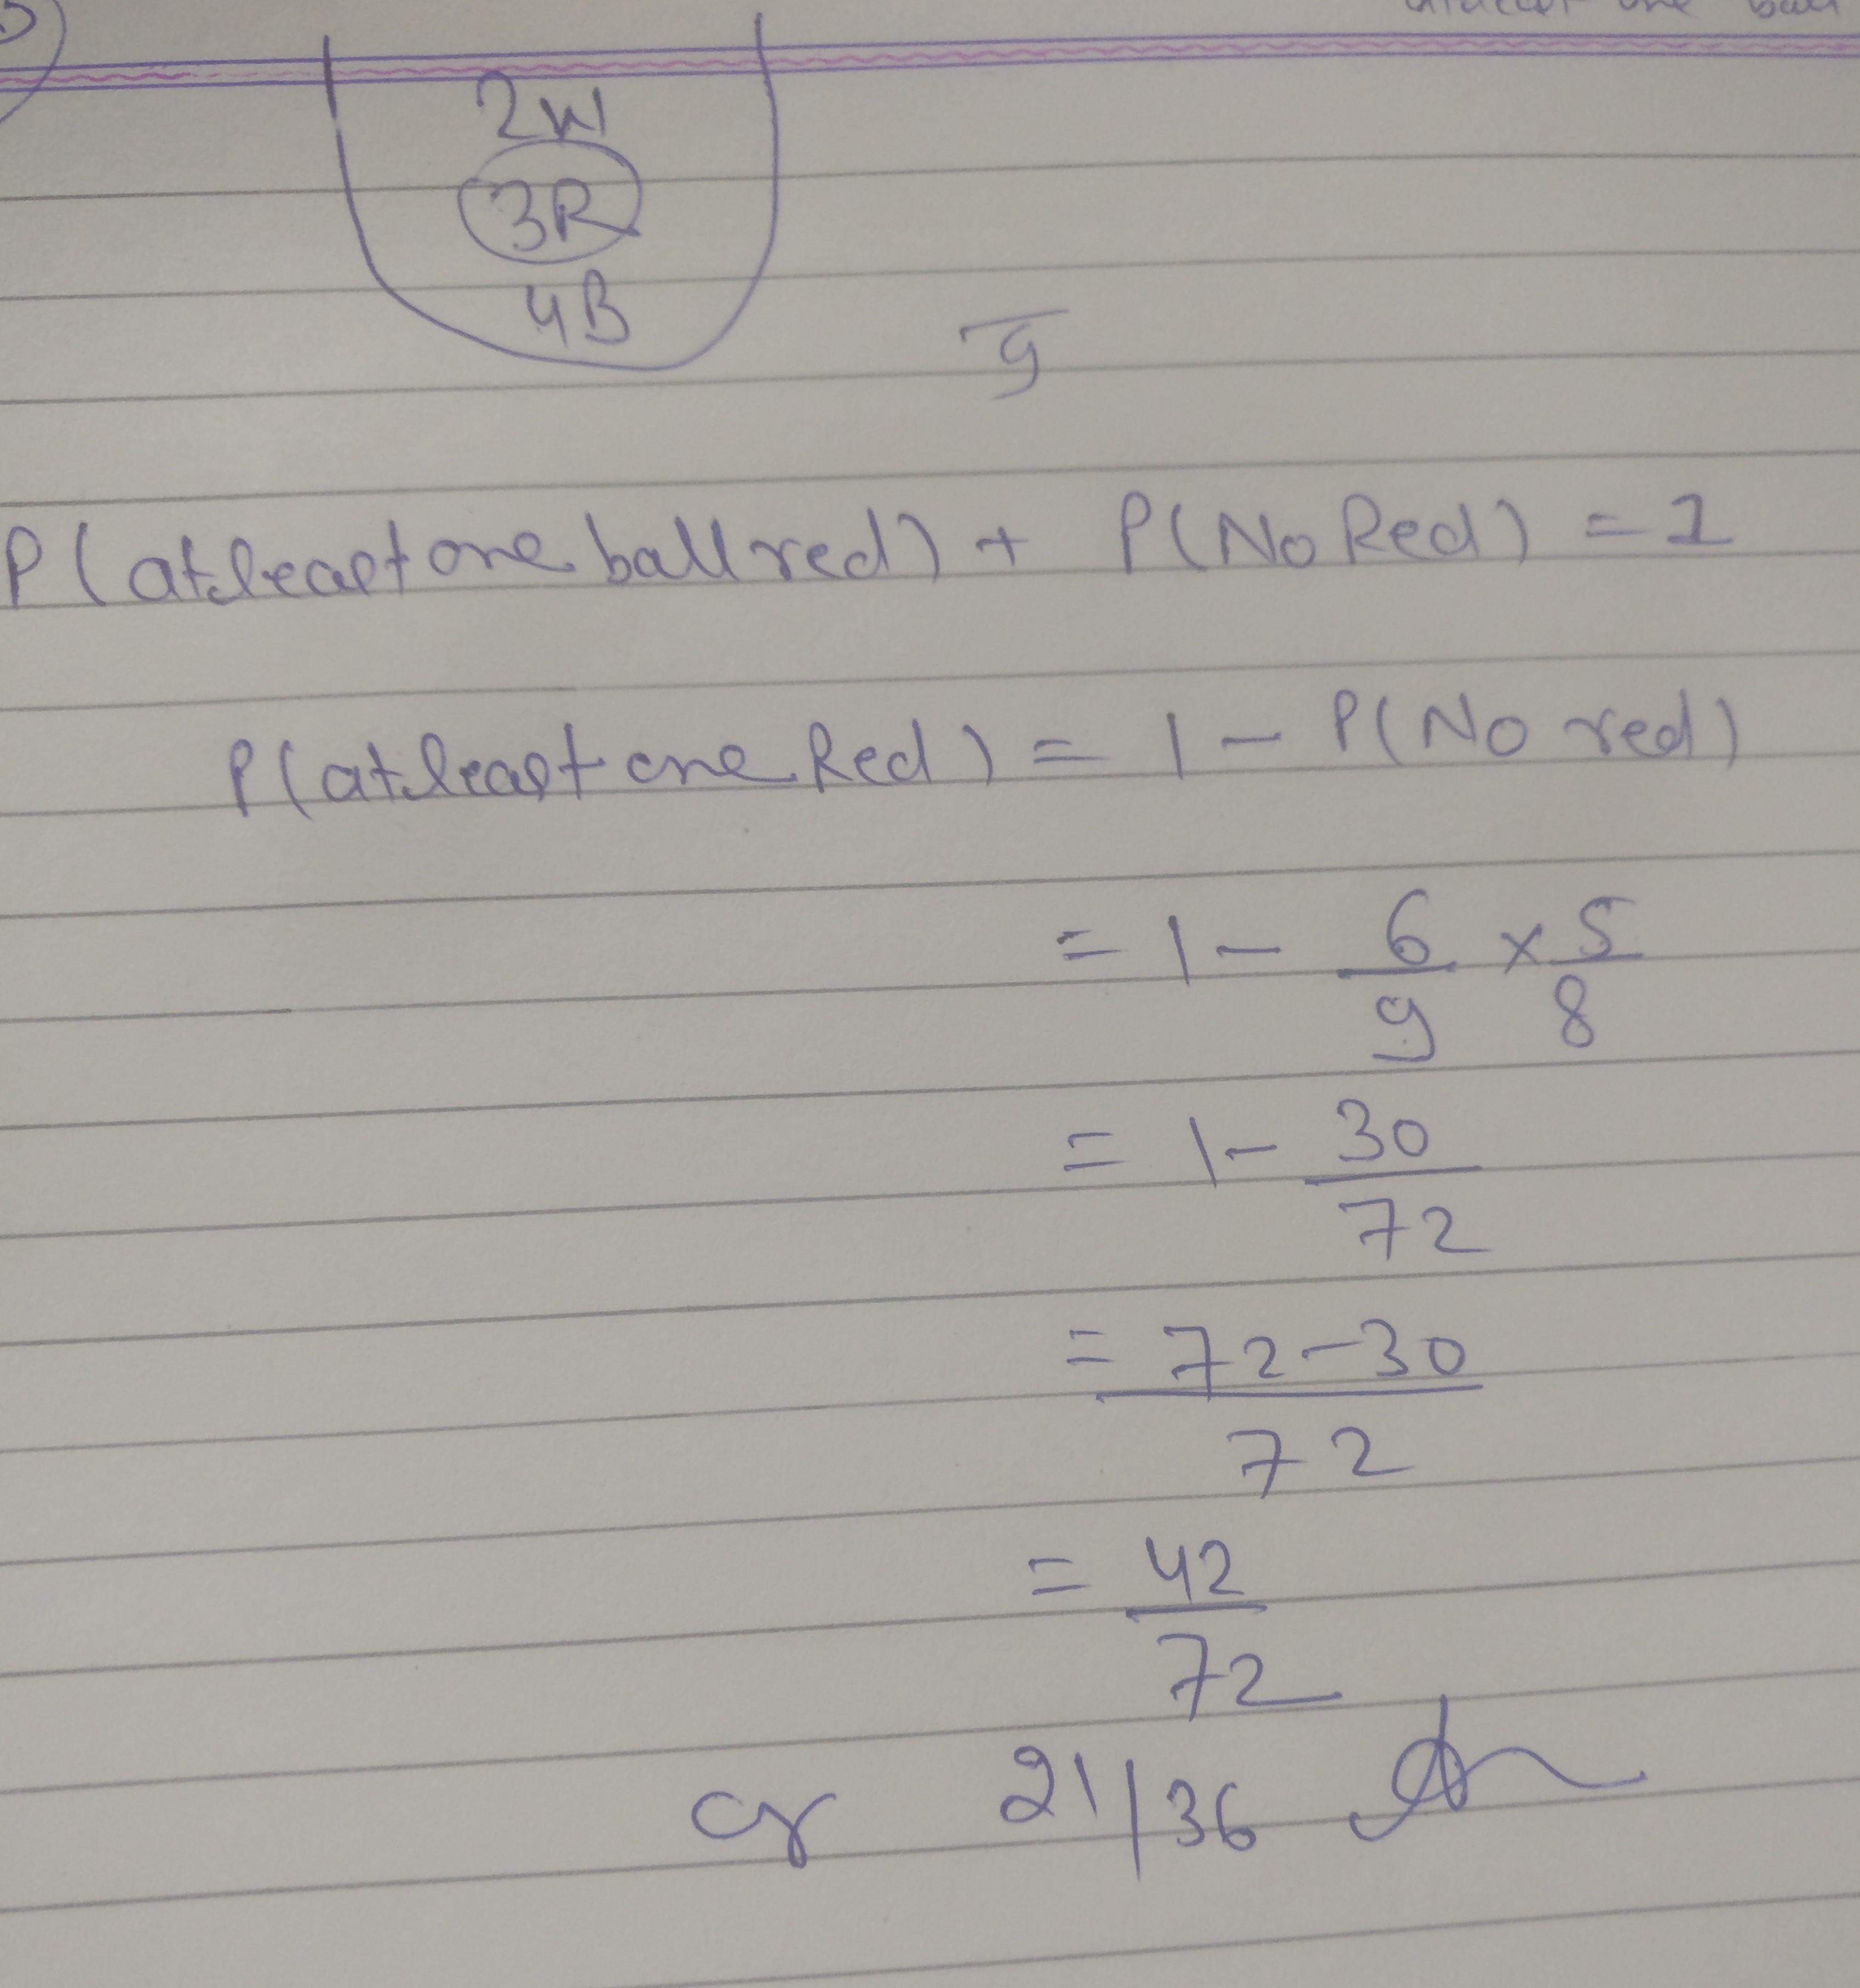 one ball
2W
3R
4B
9
P(atleast one ball red) + P(No Red) = 1
P(atleast one Red) = 1 - P(No red)
= 1 - 6/9 × 5/8
= 1 - 30/72
= 72-30/72
= 42/72
or 21/36 A